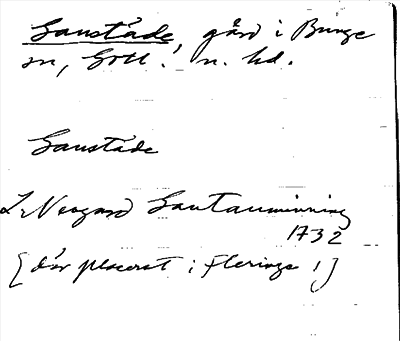 Gauståde, gård i Bunge
sn, Gotl. n. hd.
Gauståde
L. Neogard Gautauminning
1732
[där placerat i Fleringe!]